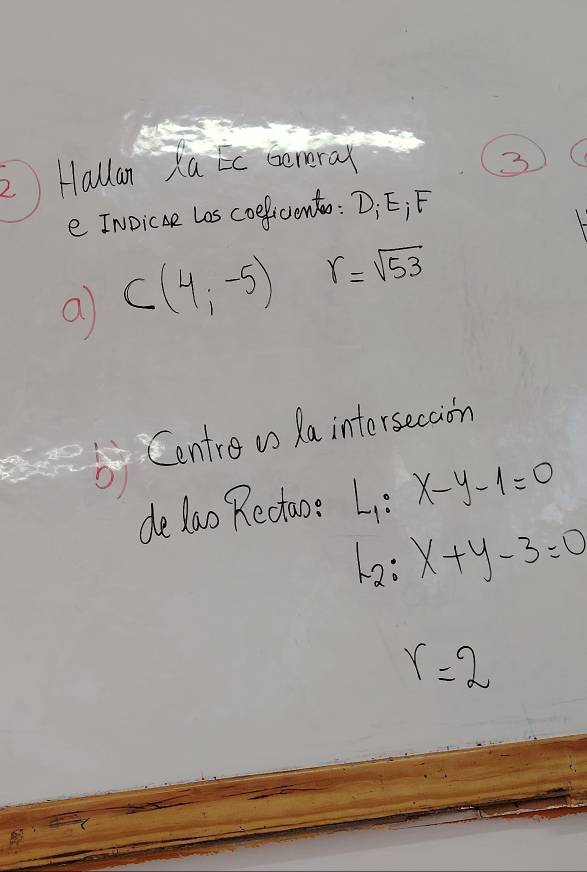 2) Hallar la Ec General
e INDICAR Los coeficientes: D;E;F
a) C(4;-5) r=√53
b) Centro es la intersección
de las Rectas: L₁: x-y-1=0
L₂: x+y-3=0
r=2
3